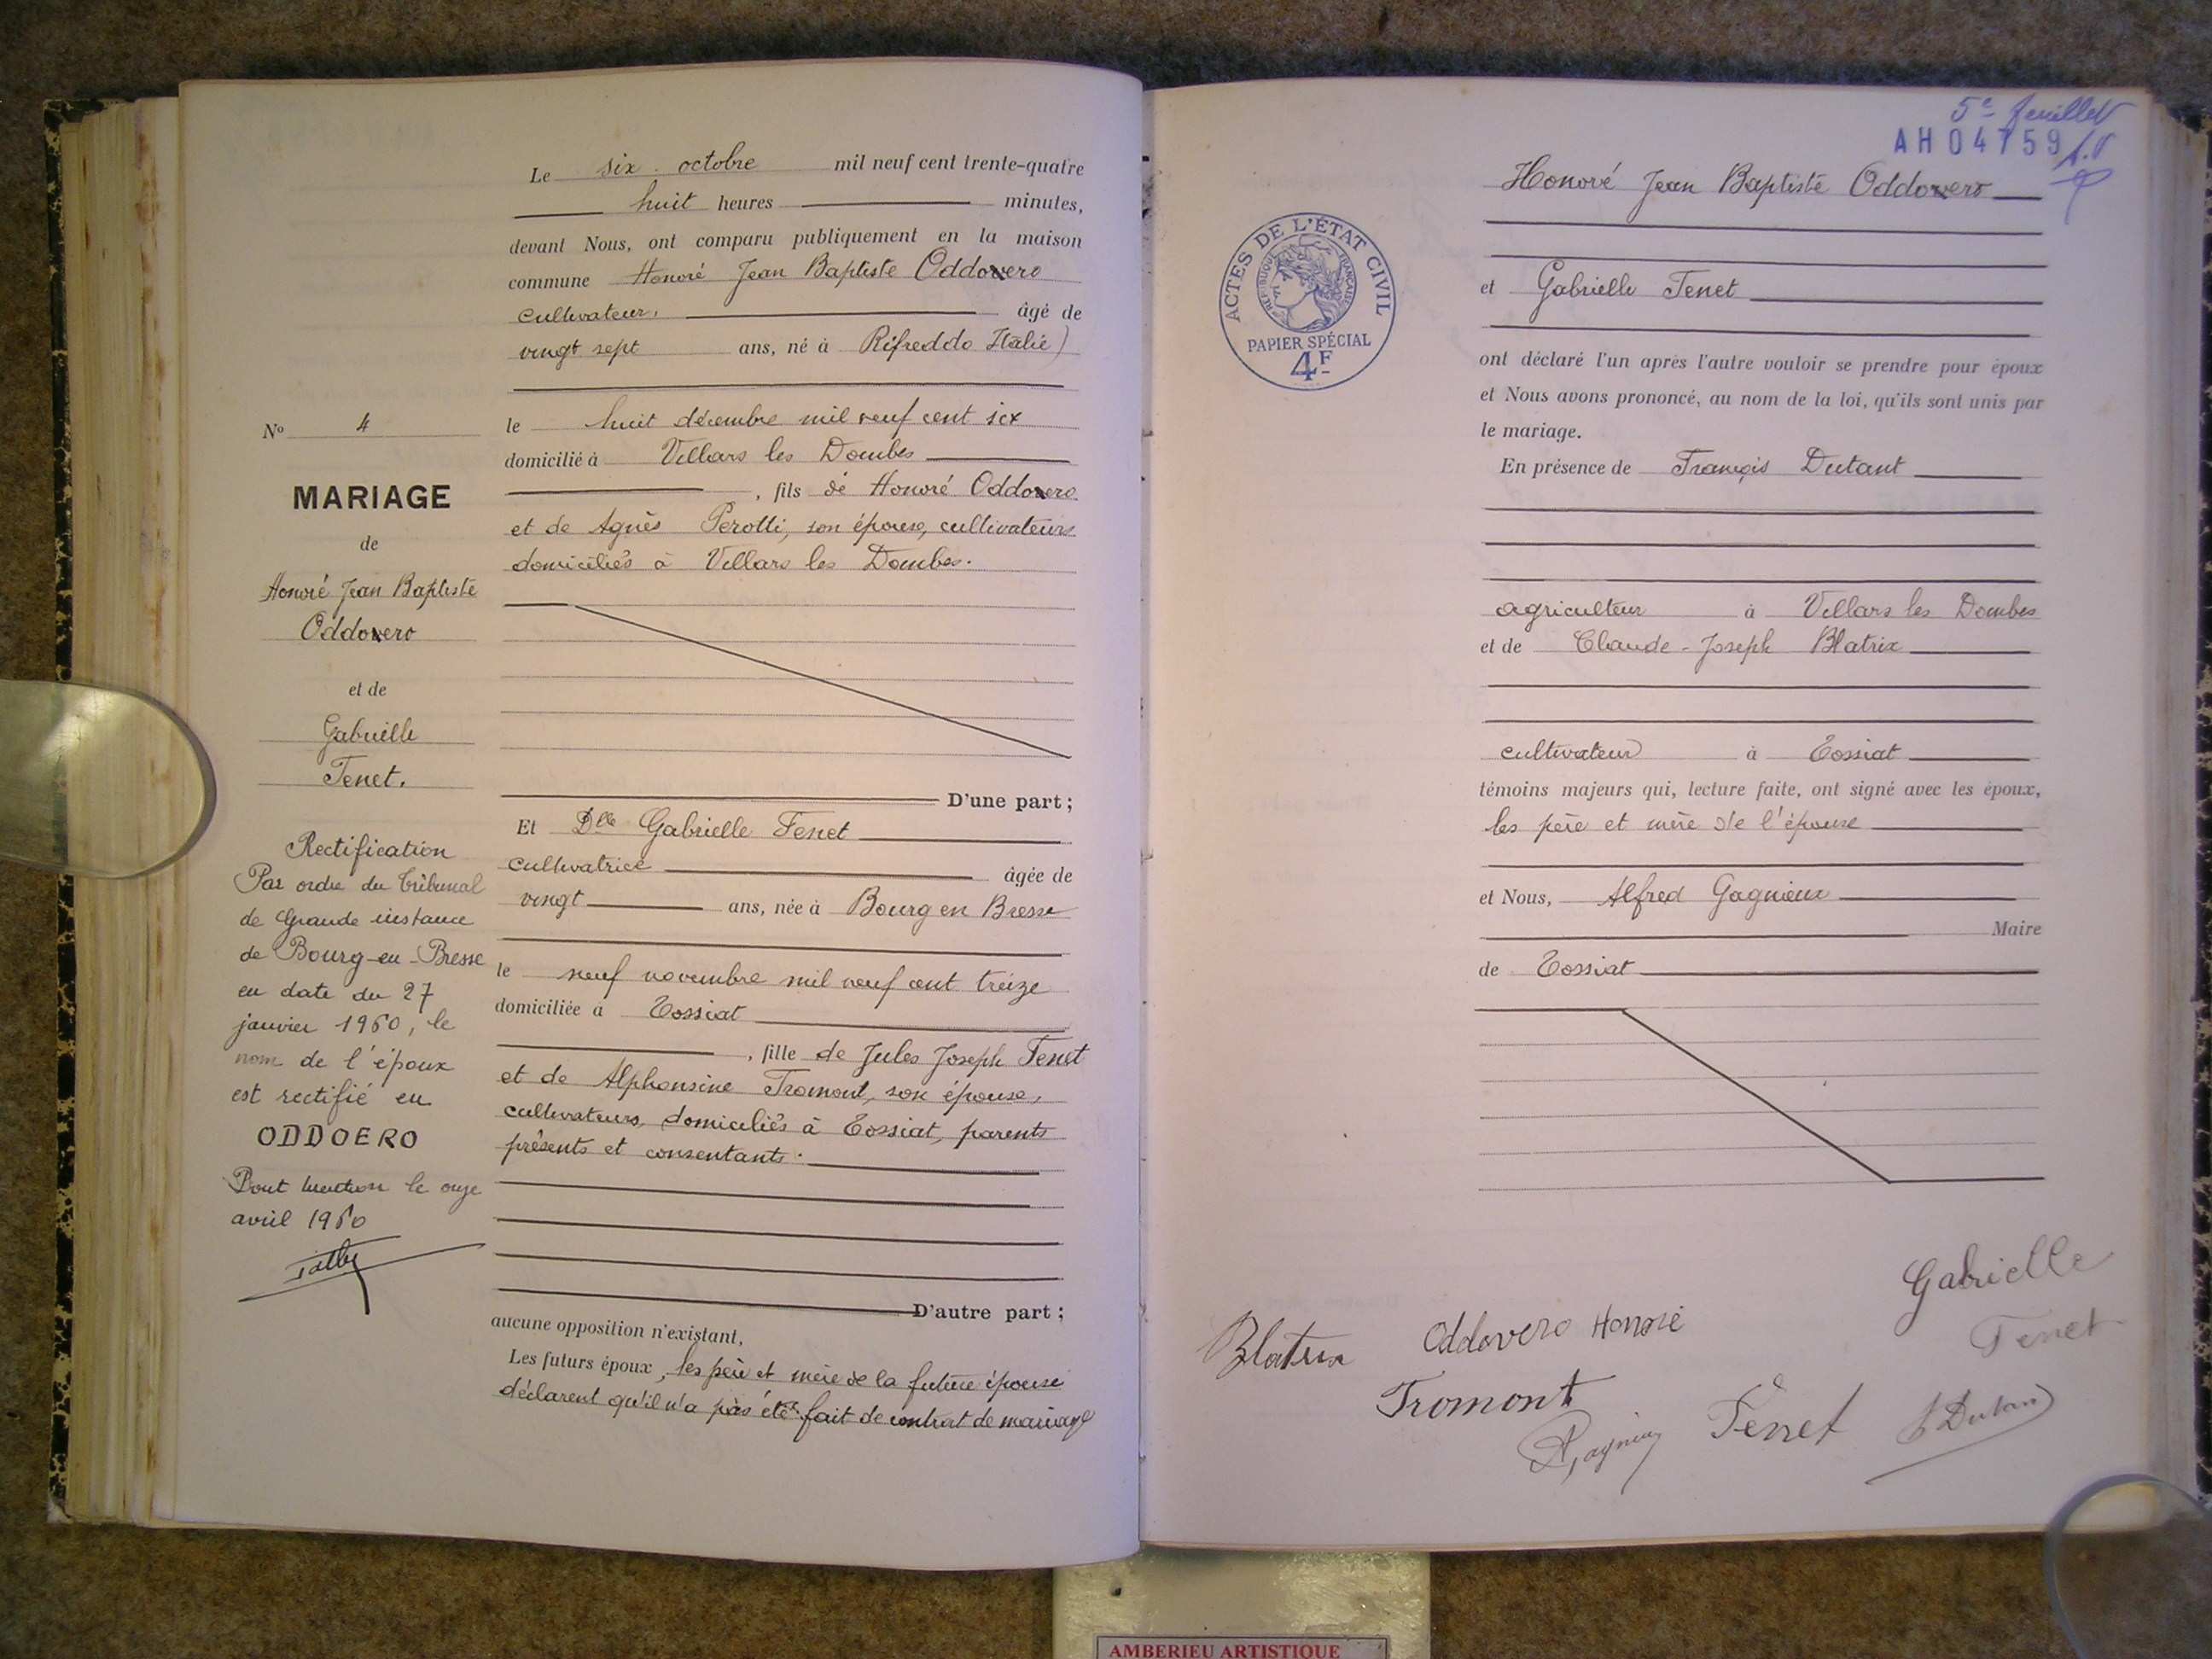 Le six octobre mil neuf cent trente-quatre
huit heures minutes,
devant Nous, ont comparu publiquement en la maison
commune Honoré Jean Baptiste Oddovero
cultivateur, âgé de
vingt sept ans, né à Rifreddo Italie)
le huit décembre mil neuf cent six
domicilié à Villars les Dombes
, fils de Honoré Oddovero
et de Agnès Perotti, son épouse, cultivateurs
domiciliés à Villars les Dombes.
D'une part ;
Et Dlle Gabrielle Tenet
cultivatrice âgée de
vingt ans, née à Bourg en Bresse
le neuf novembre mil neuf cent treize
domiciliée à Tossiat
, fille de Jules Joseph Tenet
et de Alphonsine Tromont, son épouse,
cultivateurs, domiciliés à Tossiat, parents
présents et consentants.
D'autre part ;
aucune opposition n'existant,
Les futurs époux, les père et mère de la future épouse
déclarent qu'il n'a pas été fait de contrat de mariage
No 4
MARIAGE
de
Honoré Jean Baptiste
Oddovero
et de
Gabrielle
Tenet.
Rectification
Par ordre du Tribunal
de Grande instance
de Bourg-en-Bresse
en date du 27
janvier 1960, le
nom de l'époux
est rectifié en
ODDOERO
Dont mention le onze
avril 1960
5e feuillet
AH04759
Honoré Jean Baptiste Oddovero
et Gabrielle Tenet
ACTES DE L'ÉTAT CIVIL
RÉPUBLIQUE FRANÇAISE
PAPIER SPÉCIAL
4F
ont déclaré l'un après l'autre vouloir se prendre pour époux
et Nous avons prononcé, au nom de la loi, qu'ils sont unis par
le mariage.
En présence de François Dutant
agriculteur à Villars les Dombes
et de Claude-Joseph Blatrix
cultivateur à Tossiat
témoins majeurs qui, lecture faite, ont signé avec les époux,
les père et mère de l'épouse
et Nous, Alfred Gagnieux
Maire
de Tossiat
Gabrielle
Tenet
Blatrix Oddovero Honoré
Tromont
Tenet Dutant
AMBERIEU ARTISTIQUE